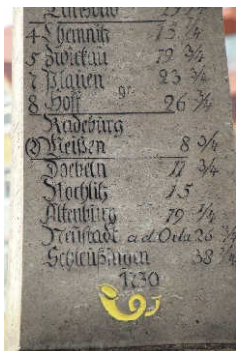 4 Chemnitz 13 1/4
5 Zwickau 19 3/4
7 Plauen 23 3/4
8 Hoff gr. 26 3/4
Radeburg
Meißen 8 3/4
Doebeln 11 3/4
Rochlitz 15
Altenburg 19 1/4
Neustadt a d Orla 26 1/4
Schleußingen 38 1/4
1730